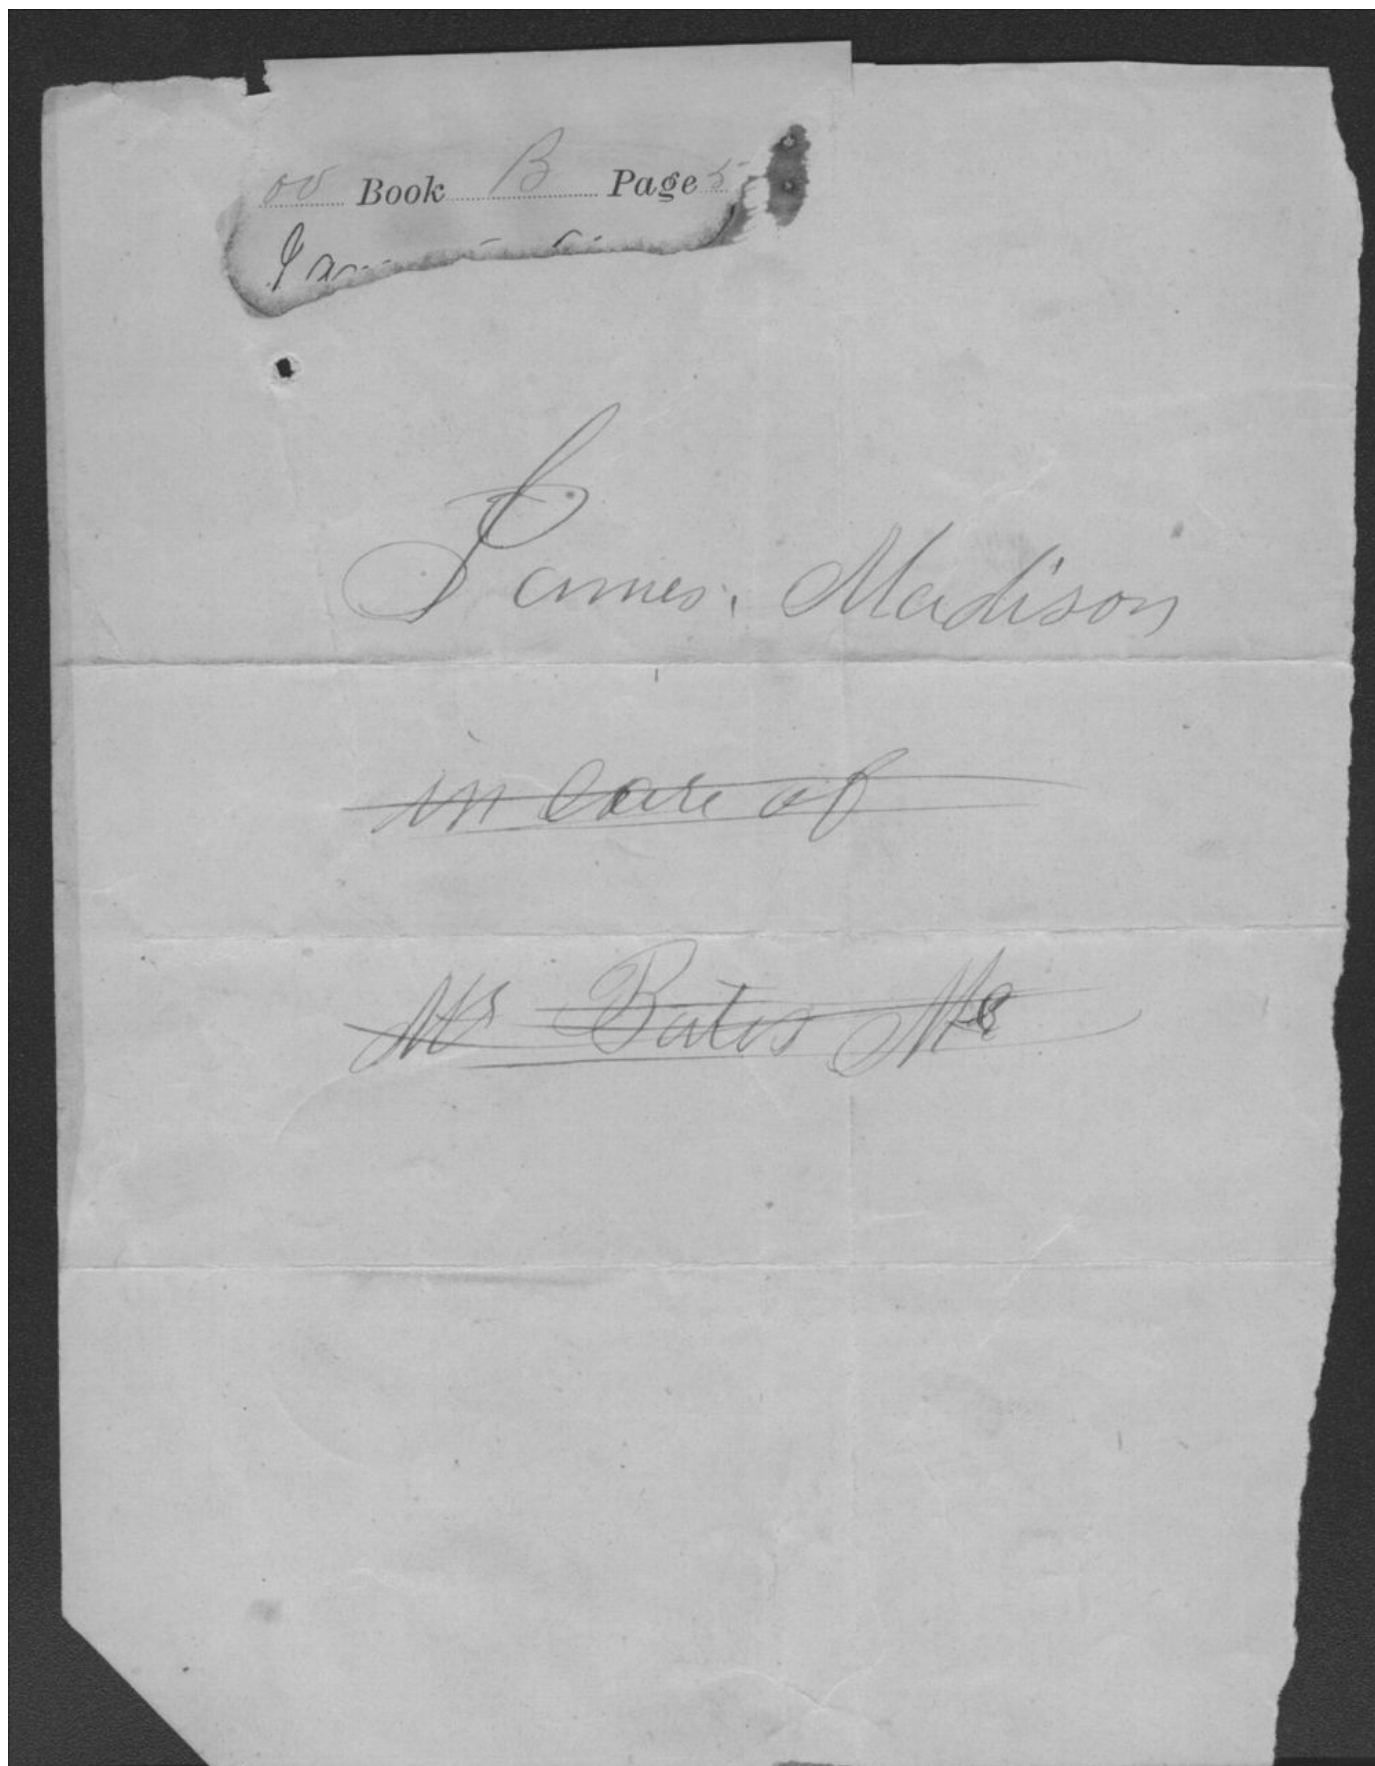 Book B Page 5
James. Madison
in care of
Mr Bates